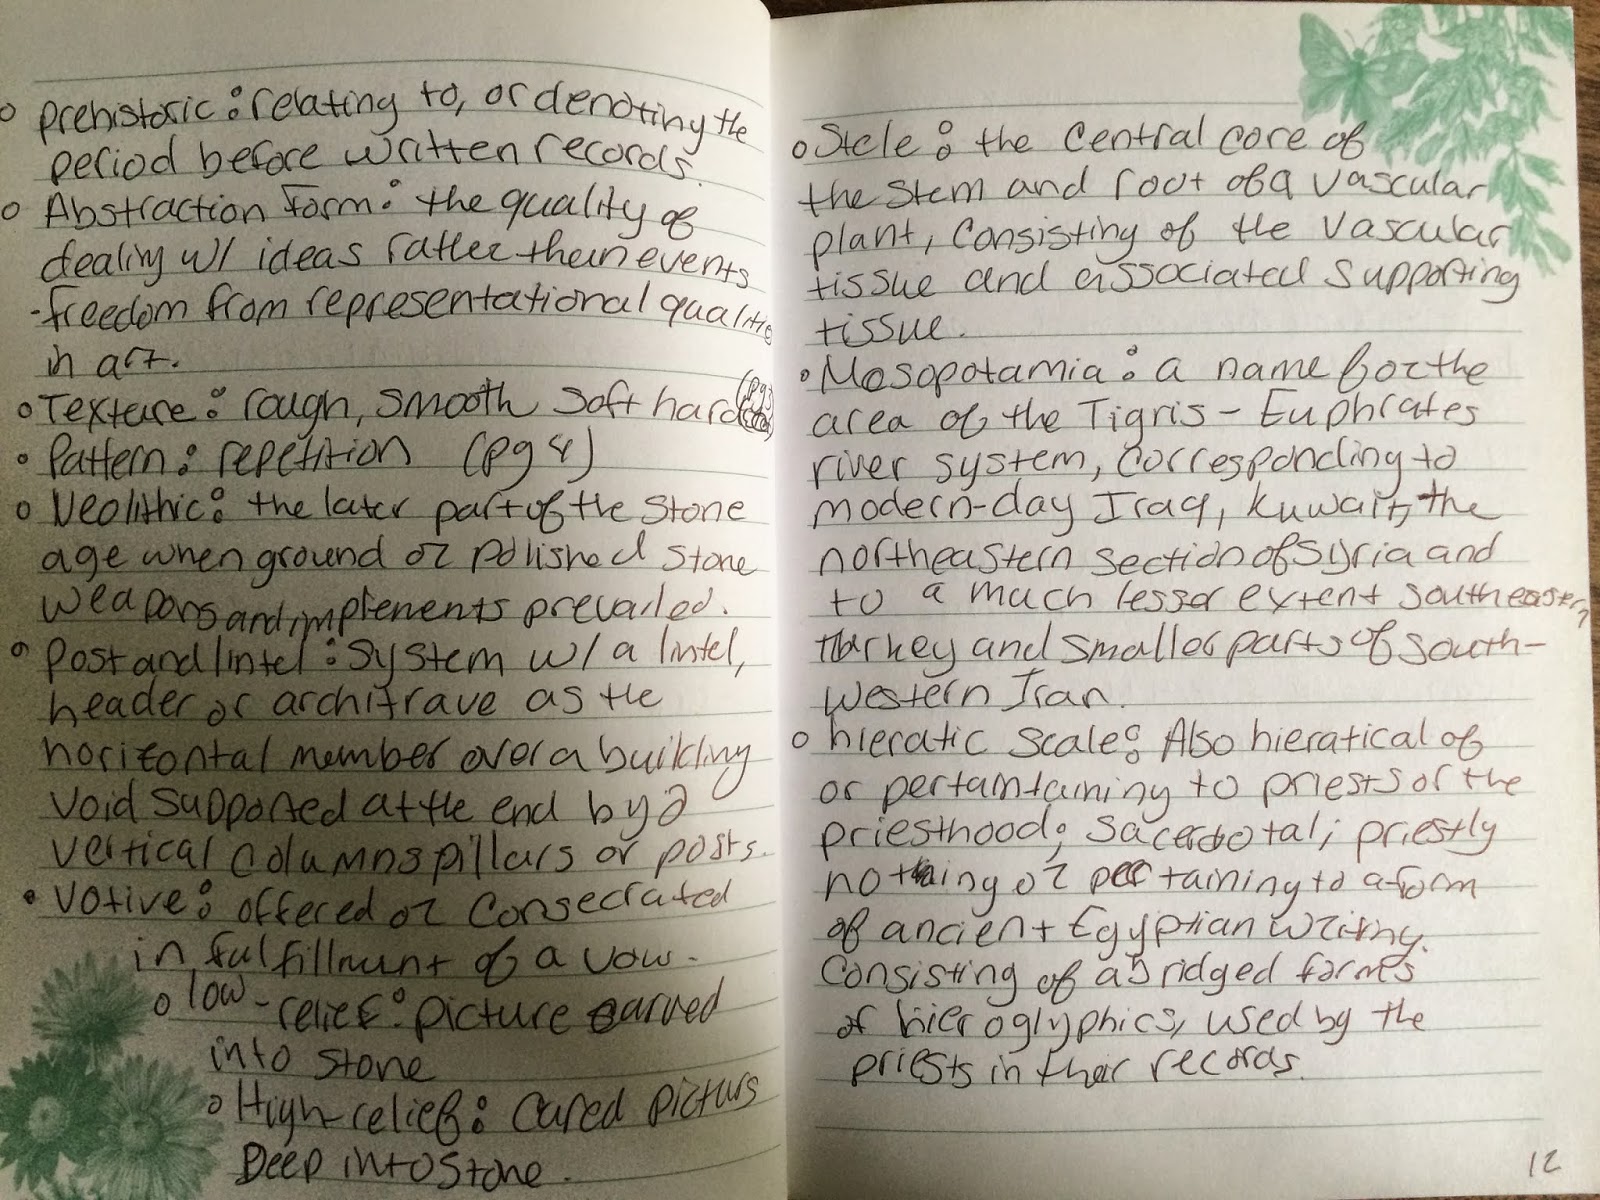 o prehistoric: relating to, or denoting the
period before written records.
o Abstraction Form: the quality of
dealing w/ ideas rather than events
- freedom from representational qualitie
in art.
o Texture: rough, smooth soft hard (pg
o Pattern: repetition (pg 4)
o Neolithic: the later part of the Stone
age when ground or polished stone
weapons and implements prevailed.
o Post and lintel: System w/ a lintel,
header or architrave as the
horizontal member over a building
void supported at the end by 2
vertical columns pillars or posts.
• Votive: offered or consecrated
in fulfillment of a vow.
o low-relief: picture carved
into stone
o High-relief: Cared picturs
Deep into Stone.
o Stele: the central core of
the stem and root of a vascular
plant, consisting of the vascular
tissue and associated supporting
tissue.
o Mesopotamia: a name for the
area of the Tigris - Euphrates
river system, corresponding to
modern-day Iraq, Kuwait, the
northeastern section of Syria and
to a much lesser extent southeastern
Turkey and smaller parts of south-
western Iran.
o hieratic scale: Also hieratical of
or pertamtaining to priests or the
priesthood; sacerdotal; priestly
nothing or pertaining to a form
of ancient Egyptian writing.
consisting of abridged forms
of hieroglyphics, used by the
priests in their records.
12